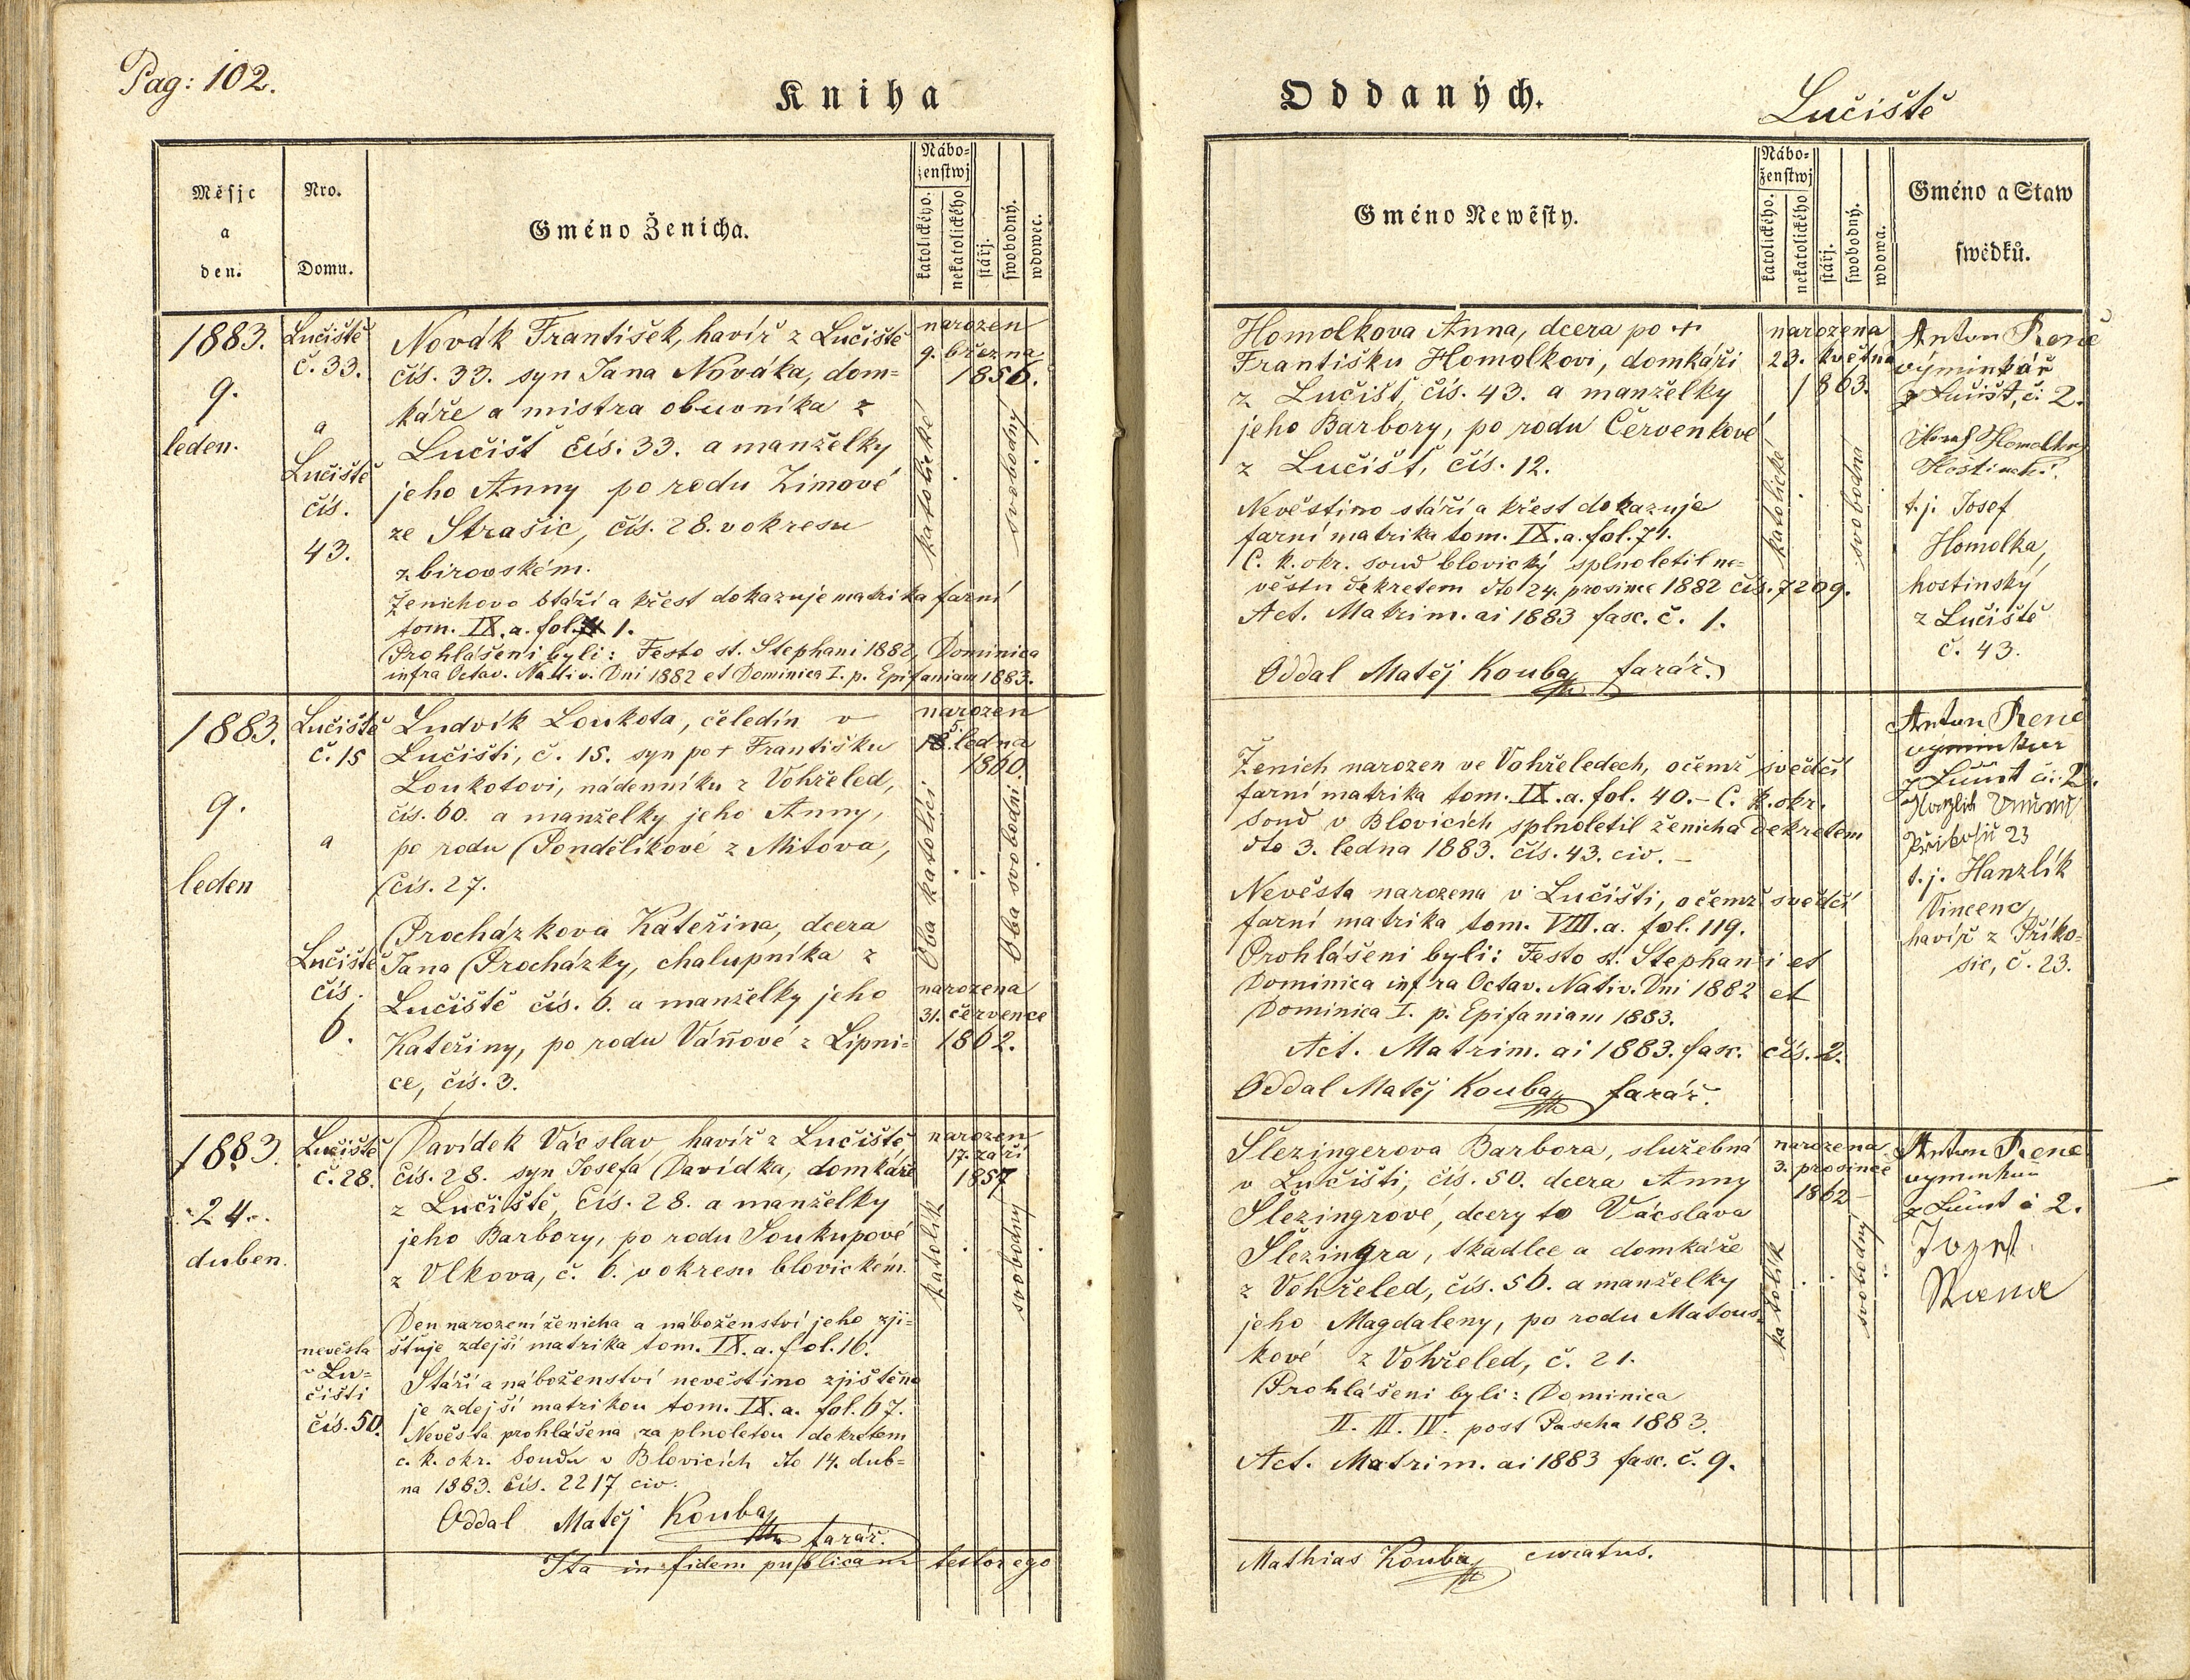 Pag: 102.
Kniha
Měsjc
a
den.
Nro.
Domu.
Gméno Ženicha.
Nábo=
ženstwj
katolického.
nekatolického
stářj.
swobodný.
wdowec.
1883.
9.
leden.
Lučiště
č. 33.
a
Lučiště
čís.
43.
Novák František, havíř z Lučiště
čís. 33. syn Jana Nováka, dom=
káře a mistra obuvníka z
Lučišť čís. 33. a manželky
jeho Anny po rodu Zimové
ze Strašic, čís. 28. v okresu
zbirovském.
Ženichovo stáří a křest dokazuje matrika farní
tom. IX. a. fol. 1.
Prohlášeni byli: Festo st. Stephani 1882, Dominica
infra Octav. Nativ. Dni 1882 et Dominica I. p. Epifaniam 1883.
narozen
9. března
1856.
katolické
svobodný
1883.
9.
leden
Lučiště
č. 15
a
Lučiště
čís.
6.
Ludvík Loukota, čeledín v
Lučišti, č. 15. syn po + Františku
Loukotovi, nádenníku z Vohřeled,
čís. 60. a manželky jeho Anny,
po rodu Pondělíkové z Mítova,
čís. 27.
Procházkova Kateřina, dcera
Jana Procházky, chalupníka z
Lučiště čís. 6. a manželky jeho
Kateřiny, po rodu Váňové z Lipni=
ce, čís. 3.
narozen
5. ledna
1860.
Oba katolíci
Oba svobodní
narozena
31. července
1862.
1883.
24.
duben.
Lučiště
č. 28.
nevěsta
v Lu=
čišti
čís. 50.
Davídek Václav havíř z Lučiště
čís. 28. syn Josefa Davídka, domkáře
z Lučiště, čís. 28. a manželky
jeho Barbory, po rodu Soukupové
z Vlkova, č. 6. v okresu blovickém.
Den narození ženicha a náboženství jeho zji=
šťuje zdejší matrika tom. IX. a. fol. 16.
Stáří a náboženství nevěstino zjištěno
je zdejší matrikou tom. IX. a. fol. 67.
Nevěsta prohlášena za plnoletou dekretem
c. k. okr. soudu v Blovicích dto 14. dub=
na 1883. čís. 2217 civ.
Oddal Matěj Kouba
farář.
narozen
17. září
1857
katolík
svobodný
Ita in fidem publicam testor ego
Oddaných.
Lučiště
Gméno Newěsty.
Nábo=
ženstwj
katolického.
nekatolického
stářj.
swobodný.
wdowa.
Gméno a Staw
swědků.
Homolkova Anna, dcera po +
Františku Homolkovi, domkáři
z Lučišť, čís. 43. a manželky
jeho Barbory, po rodu Červenkové
z Lučišť, čís. 12.
Nevěstino stáří a křest dokazuje
farní matrika tom. IX. a. fol. 71.
C. k. okr. soud blovický splnoletil ne=
věstu dekretem dto 24. prosince 1882 čís. 7209.
Act. Matrim. ai 1883 fasc. č. 1.
Oddal Matěj Kouba farář.
narozena
23. května
1863.
katolické
svobodna
Anton Reně
výminkář
z Lučišť, č. 2.
Josef Homolka
Hostinský
t. j. Josef
Homolka,
hostinský
z Lučiště
č. 43.
Ženich narozen ve Vohřeledech, o čemž svědčí
farní matrika tom. IX. a. fol. 40. – C. k. okr.
soud v Blovicích splnoletil ženicha dekretem
dto 3. ledna 1883. čís. 43. civ. –
Nevěsta narozena v Lučišti, o čemž svědčí
farní matrika tom. VIII. a. fol. 119.
Prohlášeni byli: Festo st. Stephani et
Dominica infra Octav. Nativ. Dni 1882 et
Dominica I. p. Epifaniam 1883.
Act. Matrim. ai 1883. fasc. čís. 2.
Oddal Matěj Kouba farář.
Anton Rene
výminkář
z Lučišť č. 2.
Příkosic 23
t. j. Hanzlík
Vincenc,
havíř z Příko=
sic, č. 23.
Šlezingerova Barbora, služebná
v Lučišti, čís. 50. dcera Anny
Šlezingrové, dcery to Václava
Šlezingra, tkadlce a domkáře
z Vohřeled, čís. 56. a manželky
jeho Magdaleny, po rodu Matouš=
kové z Vohřeled, č. 21.
Prohlášeni byli: Dominica
II. III. IV. post Pascha 1883.
Act. Matrim. ai 1883 fasc. č. 9.
narozena
3. prosince
1862 –
katolík
svobodný
Anton Rene
výminkář
z Lučišť č 2.
Jozef
Mathias Kouba curatus.